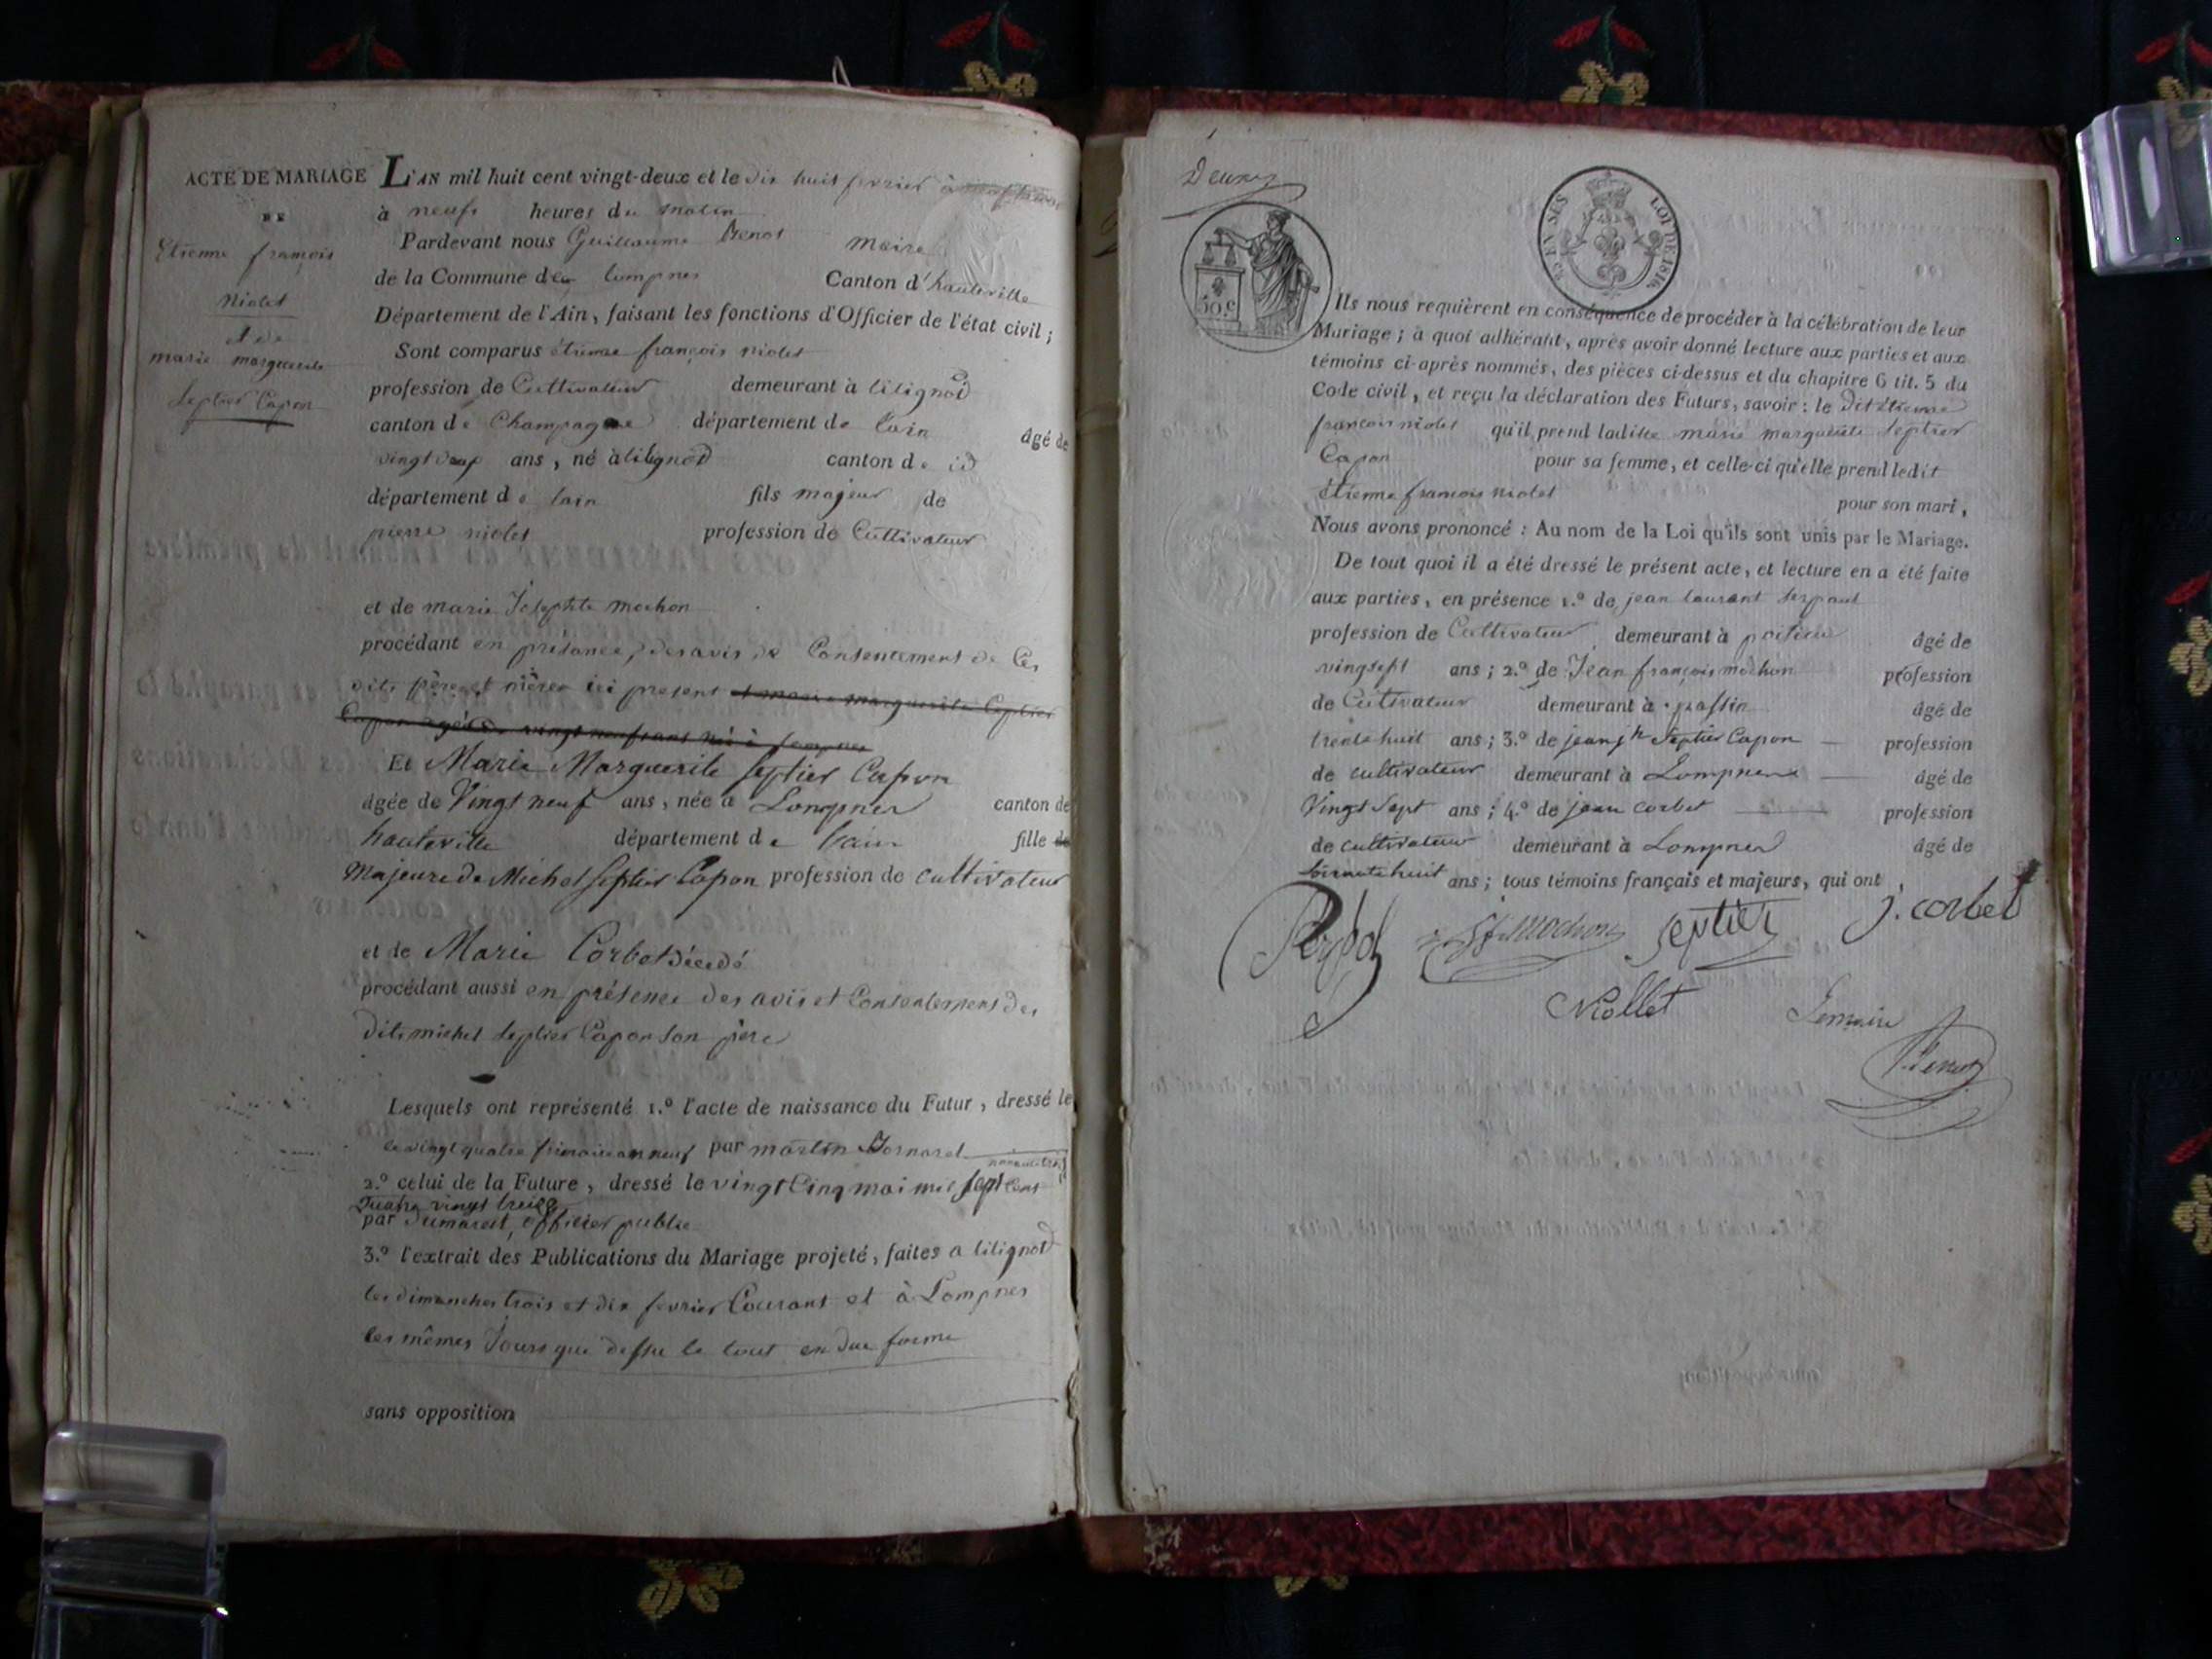 ACTE DE MARIAGE
DE
Etienne françois
niolet
et de
marie marguerite
Septier Capon
L'AN mil huit cent vingt-deux et le dix huit fevrier à
à neufs heures du matin
Pardevant nous Guillaume Maire
de la Commune de lompnes Canton d'hauteville
Département de l'Ain, faisant les fonctions d'Officier de l'état civil ;
Sont comparus étienne françois niolet
profession de Cultivateur demeurant à lilignod
canton de Champagne département de lain âgé de
vingt ans, né à lilignod canton de id
département de lain fils majeur de
pierre niolet profession de Cultivateur
et de marie Josephte mochon
procédant en présance, des avis et Consentement de Ces
dits père et mères ici present et marie marguerite Septier
Capon agée de vingt neuf ans née à Lompnes
Et Marie Marguerite Septier Capon
âgée de Vingt neuf ans, née à Lompnes canton de
hauteville département de lain fille de
Majeure de Michel Septier Capon profession de cultivateur
et de Marie Corbet décédé
procédant aussi en présence des avis et Consentement des
dits michel Septier Capon son père
Lesquels ont représenté 1.º l'acte de naissance du Futur, dressé le
le vingt quatre frimaire an neuf par martin
2.º celui de la Future, dressé le vingt Cinq mai mil sept Cent
Quatre vingt treize
par Dumarest, officier public
3.º l'extrait des Publications du Mariage projeté, faites a lilignod
les dimanches trois et dix fevrier Courant et à Lompnes
les mêmes Jours que dessu le tout en due forme
sans opposition
Deux
50 C
EN SUS LOI DE 1816
Ils nous requièrent en conséquence de procéder à la célébration de leur
Mariage ; à quoi adhérant, après avoir donné lecture aux parties et aux
témoins ci-après nommés, des pièces ci-dessus et du chapitre 6 tit. 5 du
Code civil, et reçu la déclaration des Futurs, savoir : le dit étienne
françois niolet qu'il prend ladite marie marguerite Septier
Capon pour sa femme, et celle-ci qu'elle prend ledit
étienne françois niolet pour son mari,
Nous avons prononcé : Au nom de la Loi qu'ils sont unis par le Mariage.
De tout quoi il a été dressé le présent acte, et lecture en a été faite
aux parties, en présence 1.º de jean laurant
profession de Cultivateur demeurant à âgé de
vingsept ans ; 2.º de Jean françois mochon profession
de Cultivateur demeurant à passin âgé de
trente huit ans ; 3.º de jean jh Septier Capon profession
de cultivateur demeurant à Lompnes âgé de
Vingt Sept ans ; 4.º de jean corbet profession
de cultivateur demeurant à Lompnes âgé de
Soixante huit ans ; tous témoins français et majeurs, qui ont
mochon septier j. corbet
Niollet Le maire